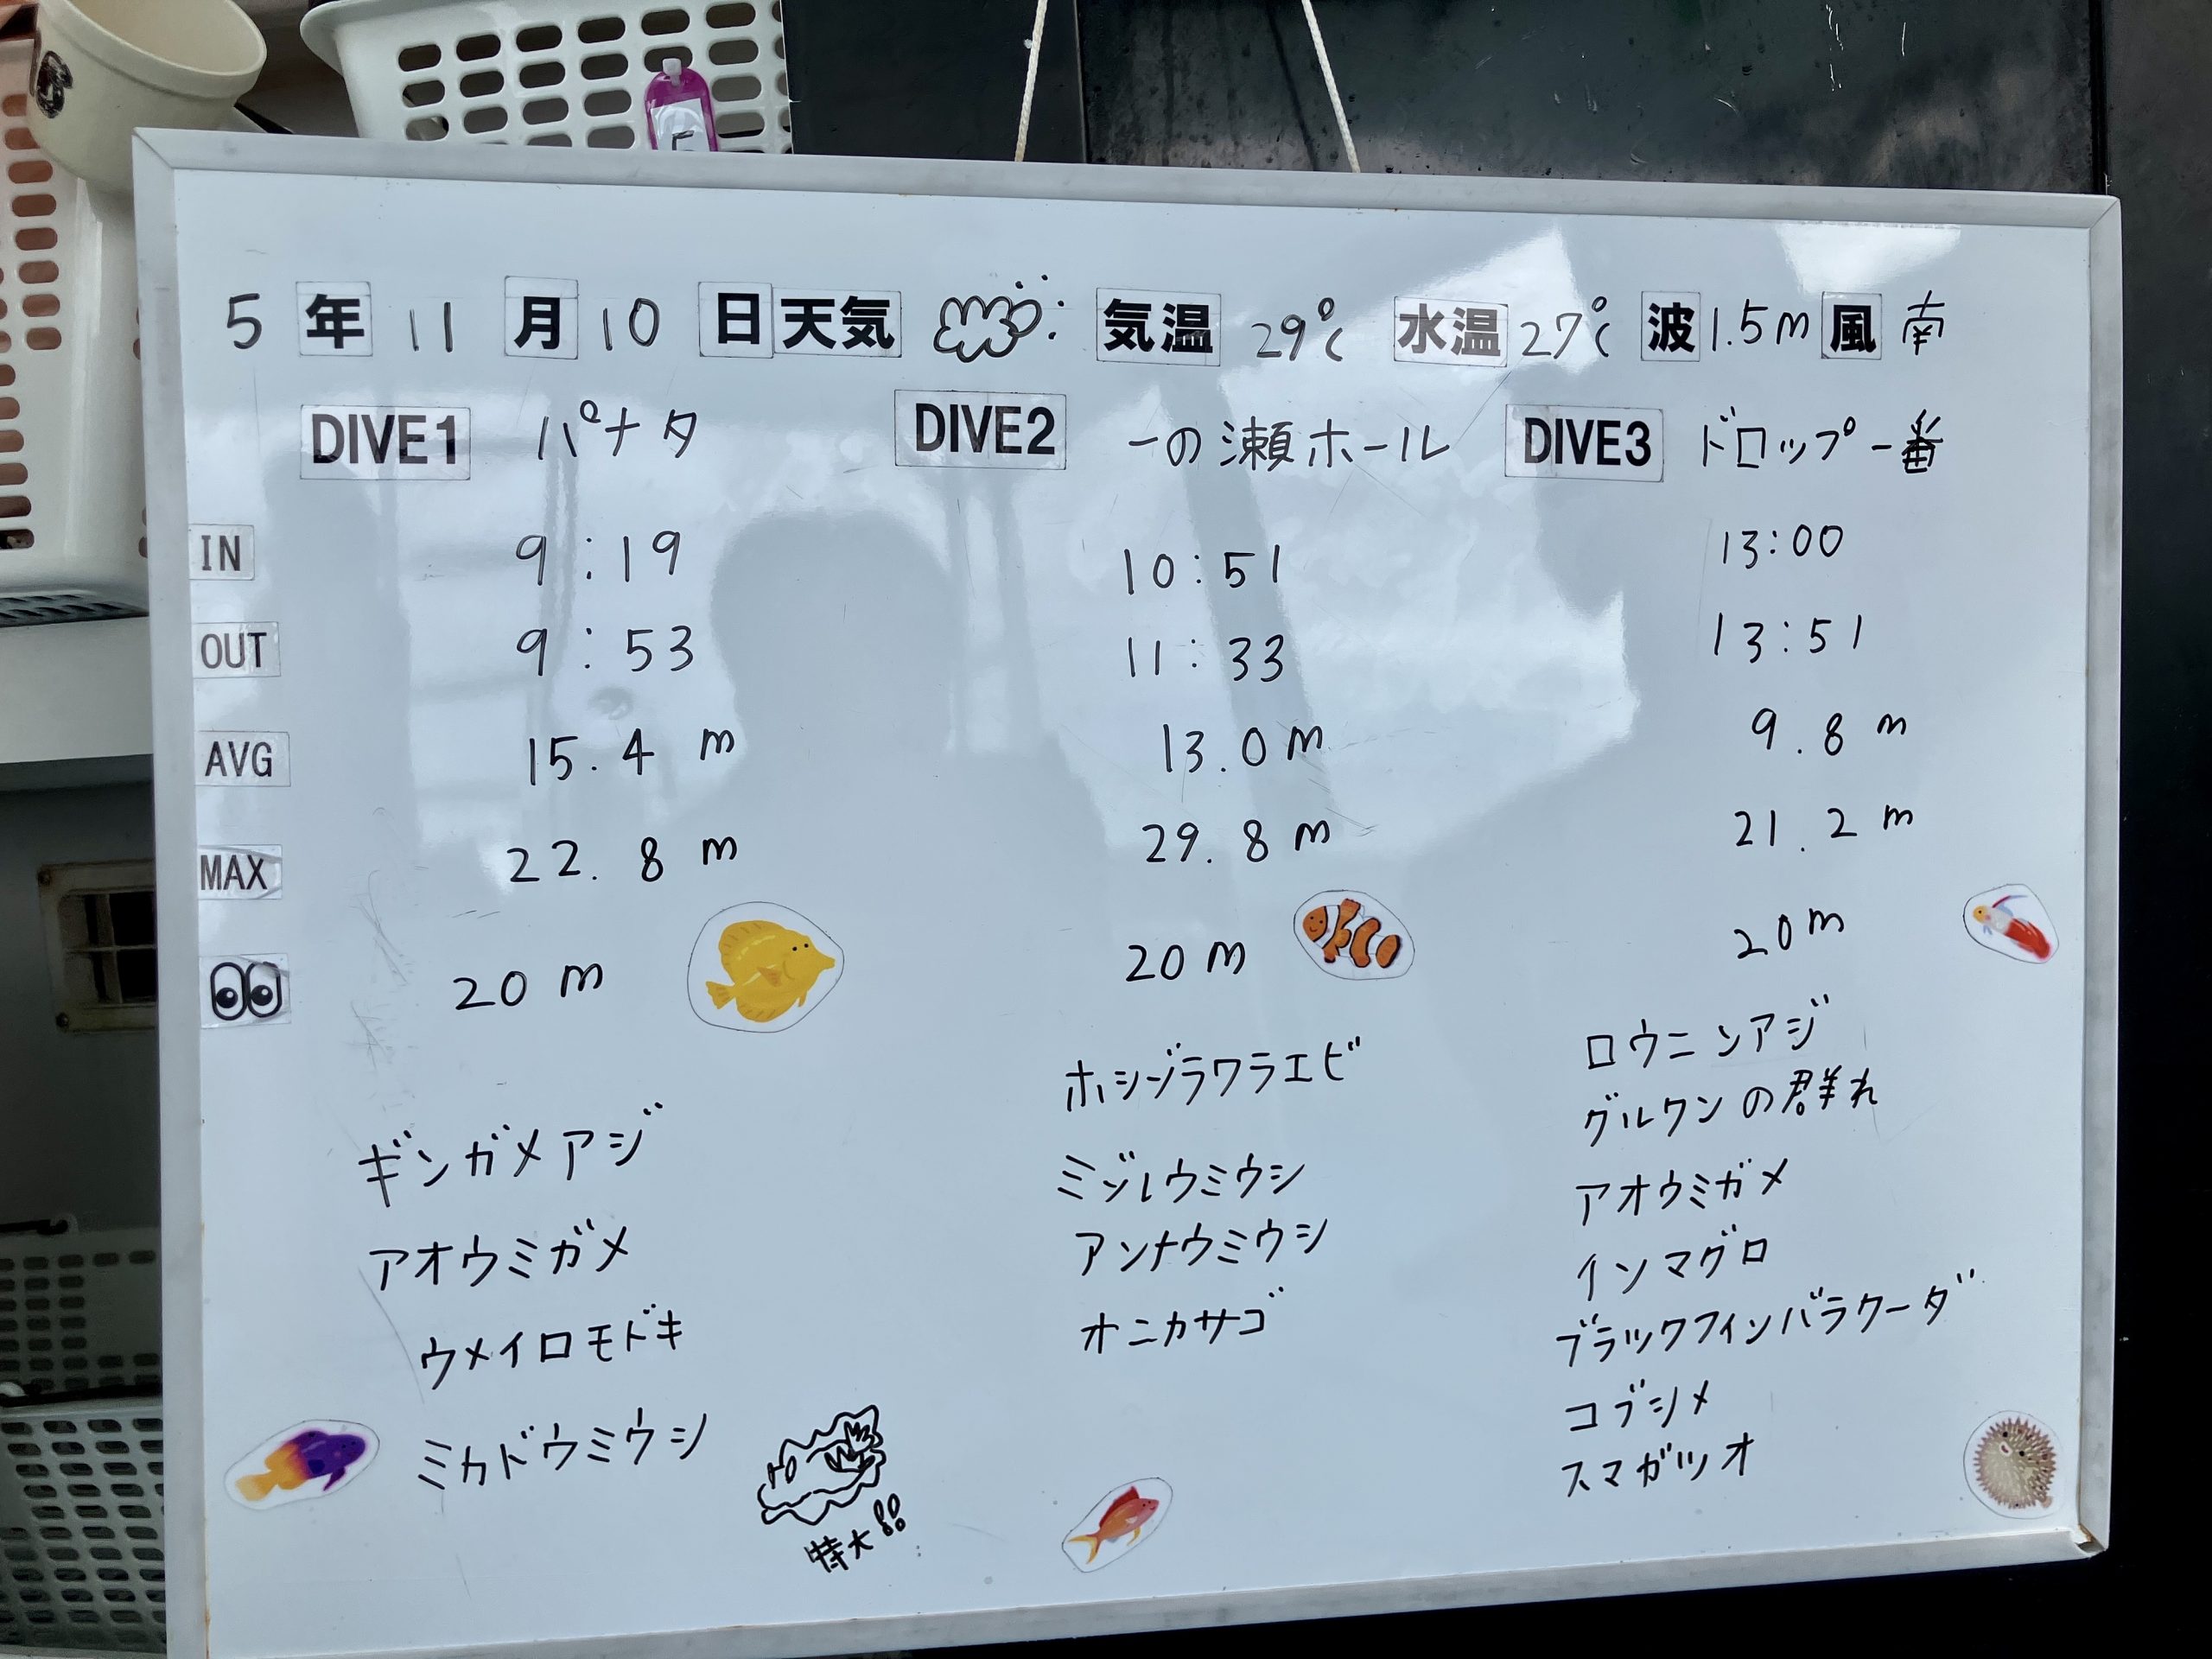 5年 11月 10日 天気 気温 29℃ 水温 27℃ 波 1.5m 風 南
DIVE1 パナタ DIVE2 一の瀬ホール DIVE3 ドロップ一番
IN 9:19 10:51 13:00
OUT 9:53 11:33 13:51
AVG 15.4 m 13.0 m 9.8 m
MAX 22.8 m 29.8 m 21.2 m
20 m 20 m 20 m
ギンガメアジ
アオウミガメ
ウメイロモドキ
ミカドウミウシ
特大!!
ホシゾラワラエビ
ミゾレウミウシ
アンナウミウシ
オニカサゴ
ロウニンアジ
グルクンの群れ
アオウミガメ
イソマグロ
ブラックフィンバラクーダ
コブシメ
スマガツオ